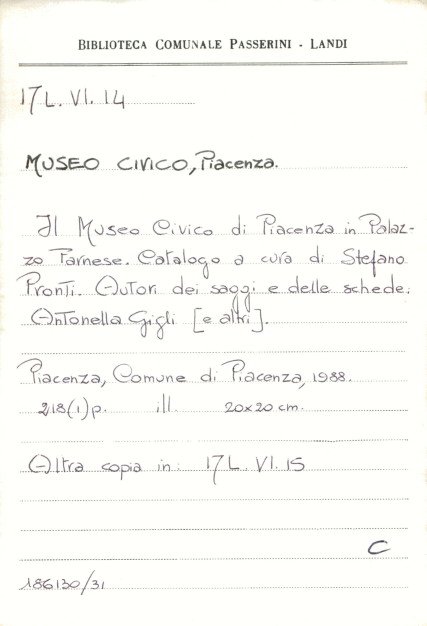 BIBLIOTECA COMUNALE PASSERINI - LANDI
17L. VI. 14
MUSEO CIVICO, Piacenza.
Il Museo Civico di Piacenza in Palaz-
zo Farnese. Catalogo a cura di Stefano
Pronti. Autori dei saggi e delle schede:
Antonella Gigli [e altri].
Piacenza, Comune di Piacenza, 1988.
218(1)p. ill. 20x20 cm.
Altra copia in: 17L. VI. 15
C
186130/31